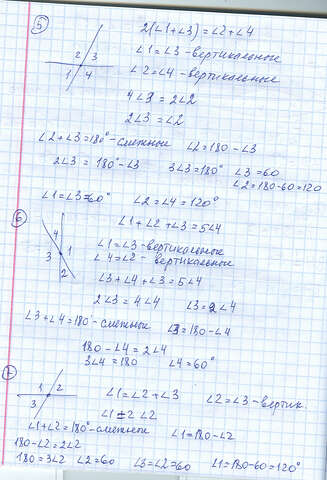 5
2(∠1+∠3) = ∠2+∠4
∠1=∠3 - вертикальные
∠2=∠4 - вертикальные
2 3
1 4
4∠3 = 2∠2
2∠3 = ∠2
∠2+∠3=180° - смежные ∠2=180-∠3
2∠3 = 180°-∠3 3∠3=180° ∠3=60
∠2=180-60=120
∠1=∠3=60° ∠2=∠4=120°
6
∠1+∠2+∠3=5∠4
∠1=∠3 - вертикальные
∠4=∠2 - вертикальные
4
3 1
2
∠3+∠4+∠3=5∠4
2∠3=4∠4 ∠3=2∠4
∠3+∠4=180° - смежные ∠3=180-∠4
180-∠4=2∠4
3∠4=180 ∠4=60°
7
1 2
3
∠1=∠2+∠3 ∠2=∠3 - вертик.
∠1=2∠2
∠1+∠2=180° - смежные ∠1=180-∠2
180-∠2=2∠2
180=3∠2 ∠2=60 ∠3=∠2=60 ∠1=180-60=120°